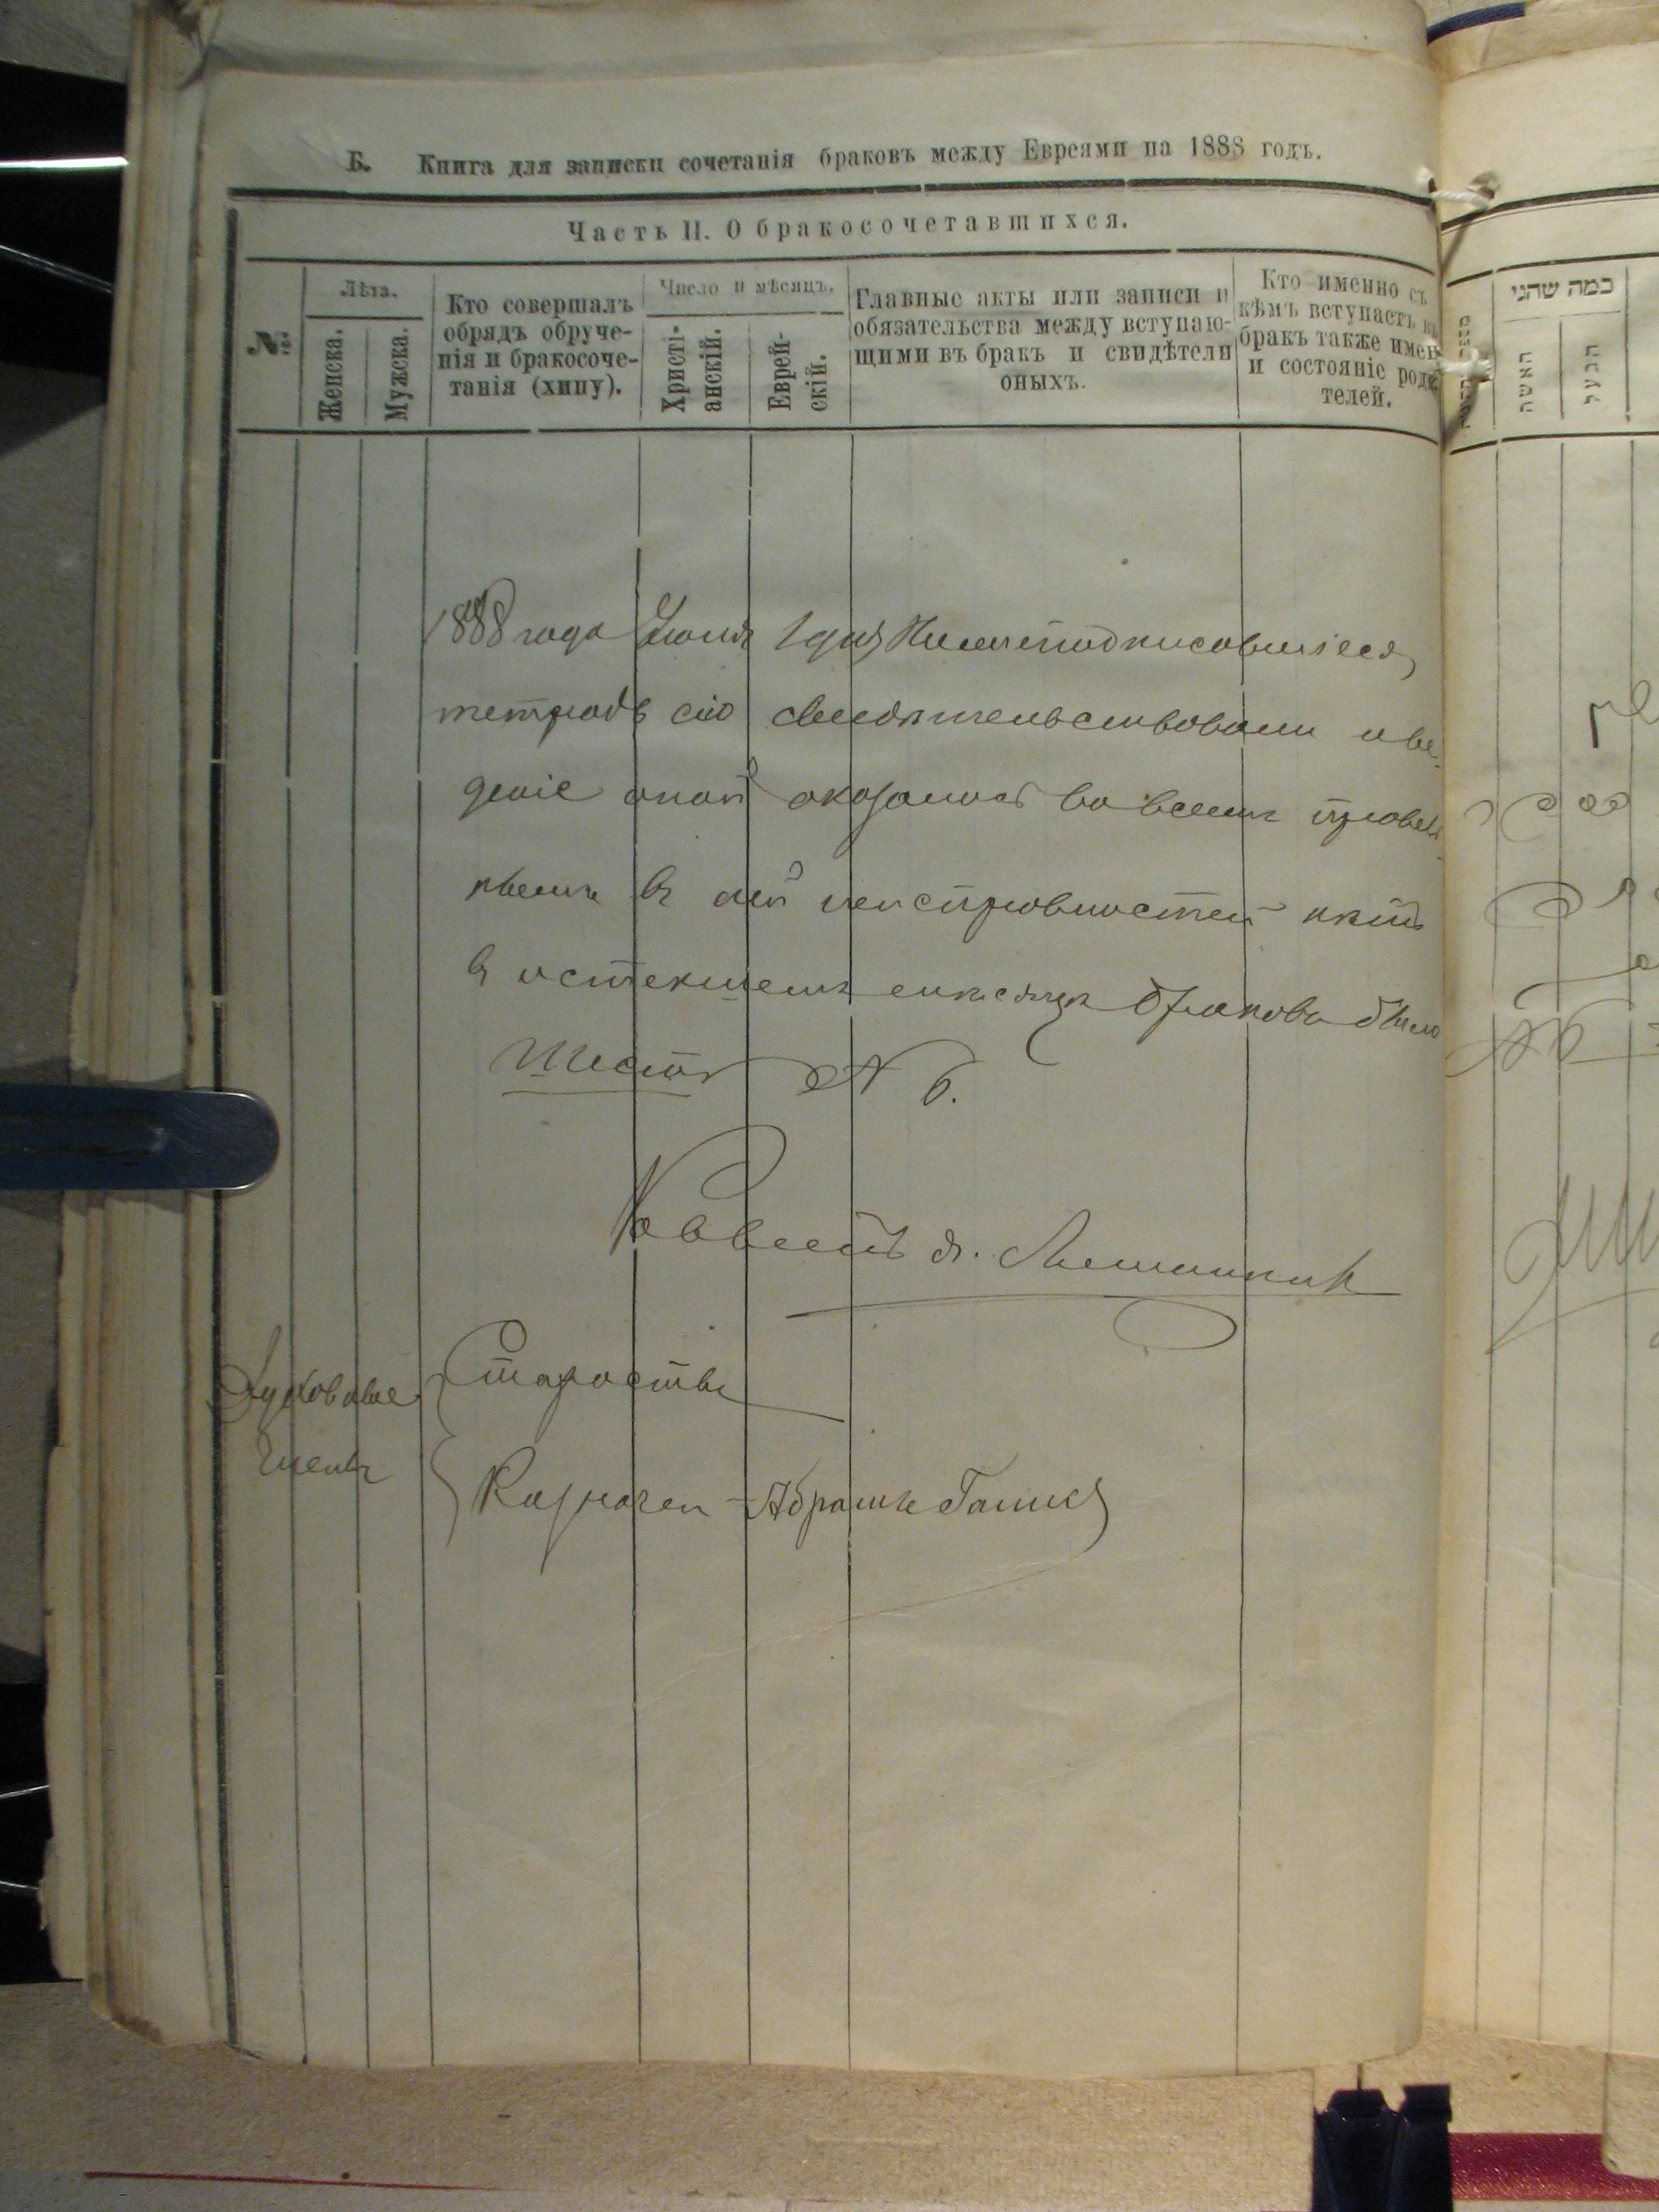 Б. Книга для записки сочетанія браковъ между Евреями на 1888 годъ.
Часть II. О бракосочетавшихся.
№
Лѣта.
Женска.
Мужска.
Кто совершалъ
обрядъ обруче-
нія и бракосоче-
танія (хипу).
Число и мѣсяцъ.
Христі-
анскій.
Еврей-
скій.
Главные акты или записи и
обязательства между вступаю-
щими въ бракъ и свидѣтели
оныхъ.
Кто именно съ
кѣмъ вступаетъ въ
бракъ также имен
и состояніе роди
телей.
כמה שהני
האשה
הבעל
1888 года Іюня 1 дня Нижеподписавшіеся,
тетрадь сію свидѣтельствовали и ве-
деніе оной оказалось во всемъ правил
въ ней неисправностей нѣтъ
въ истекшемъ мѣсяцѣ браковъ было
шесть № 6.
Раввинъ
Духовные
Члены
Староста
Казначей - Абрамъ